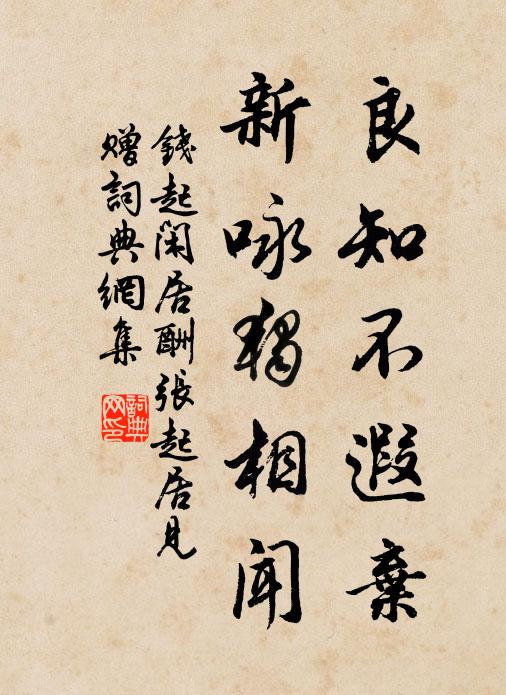 良知不遐棄
新咏獨相聞
錢起閑居酬張起居見
贈詞典網集
詞典
网印